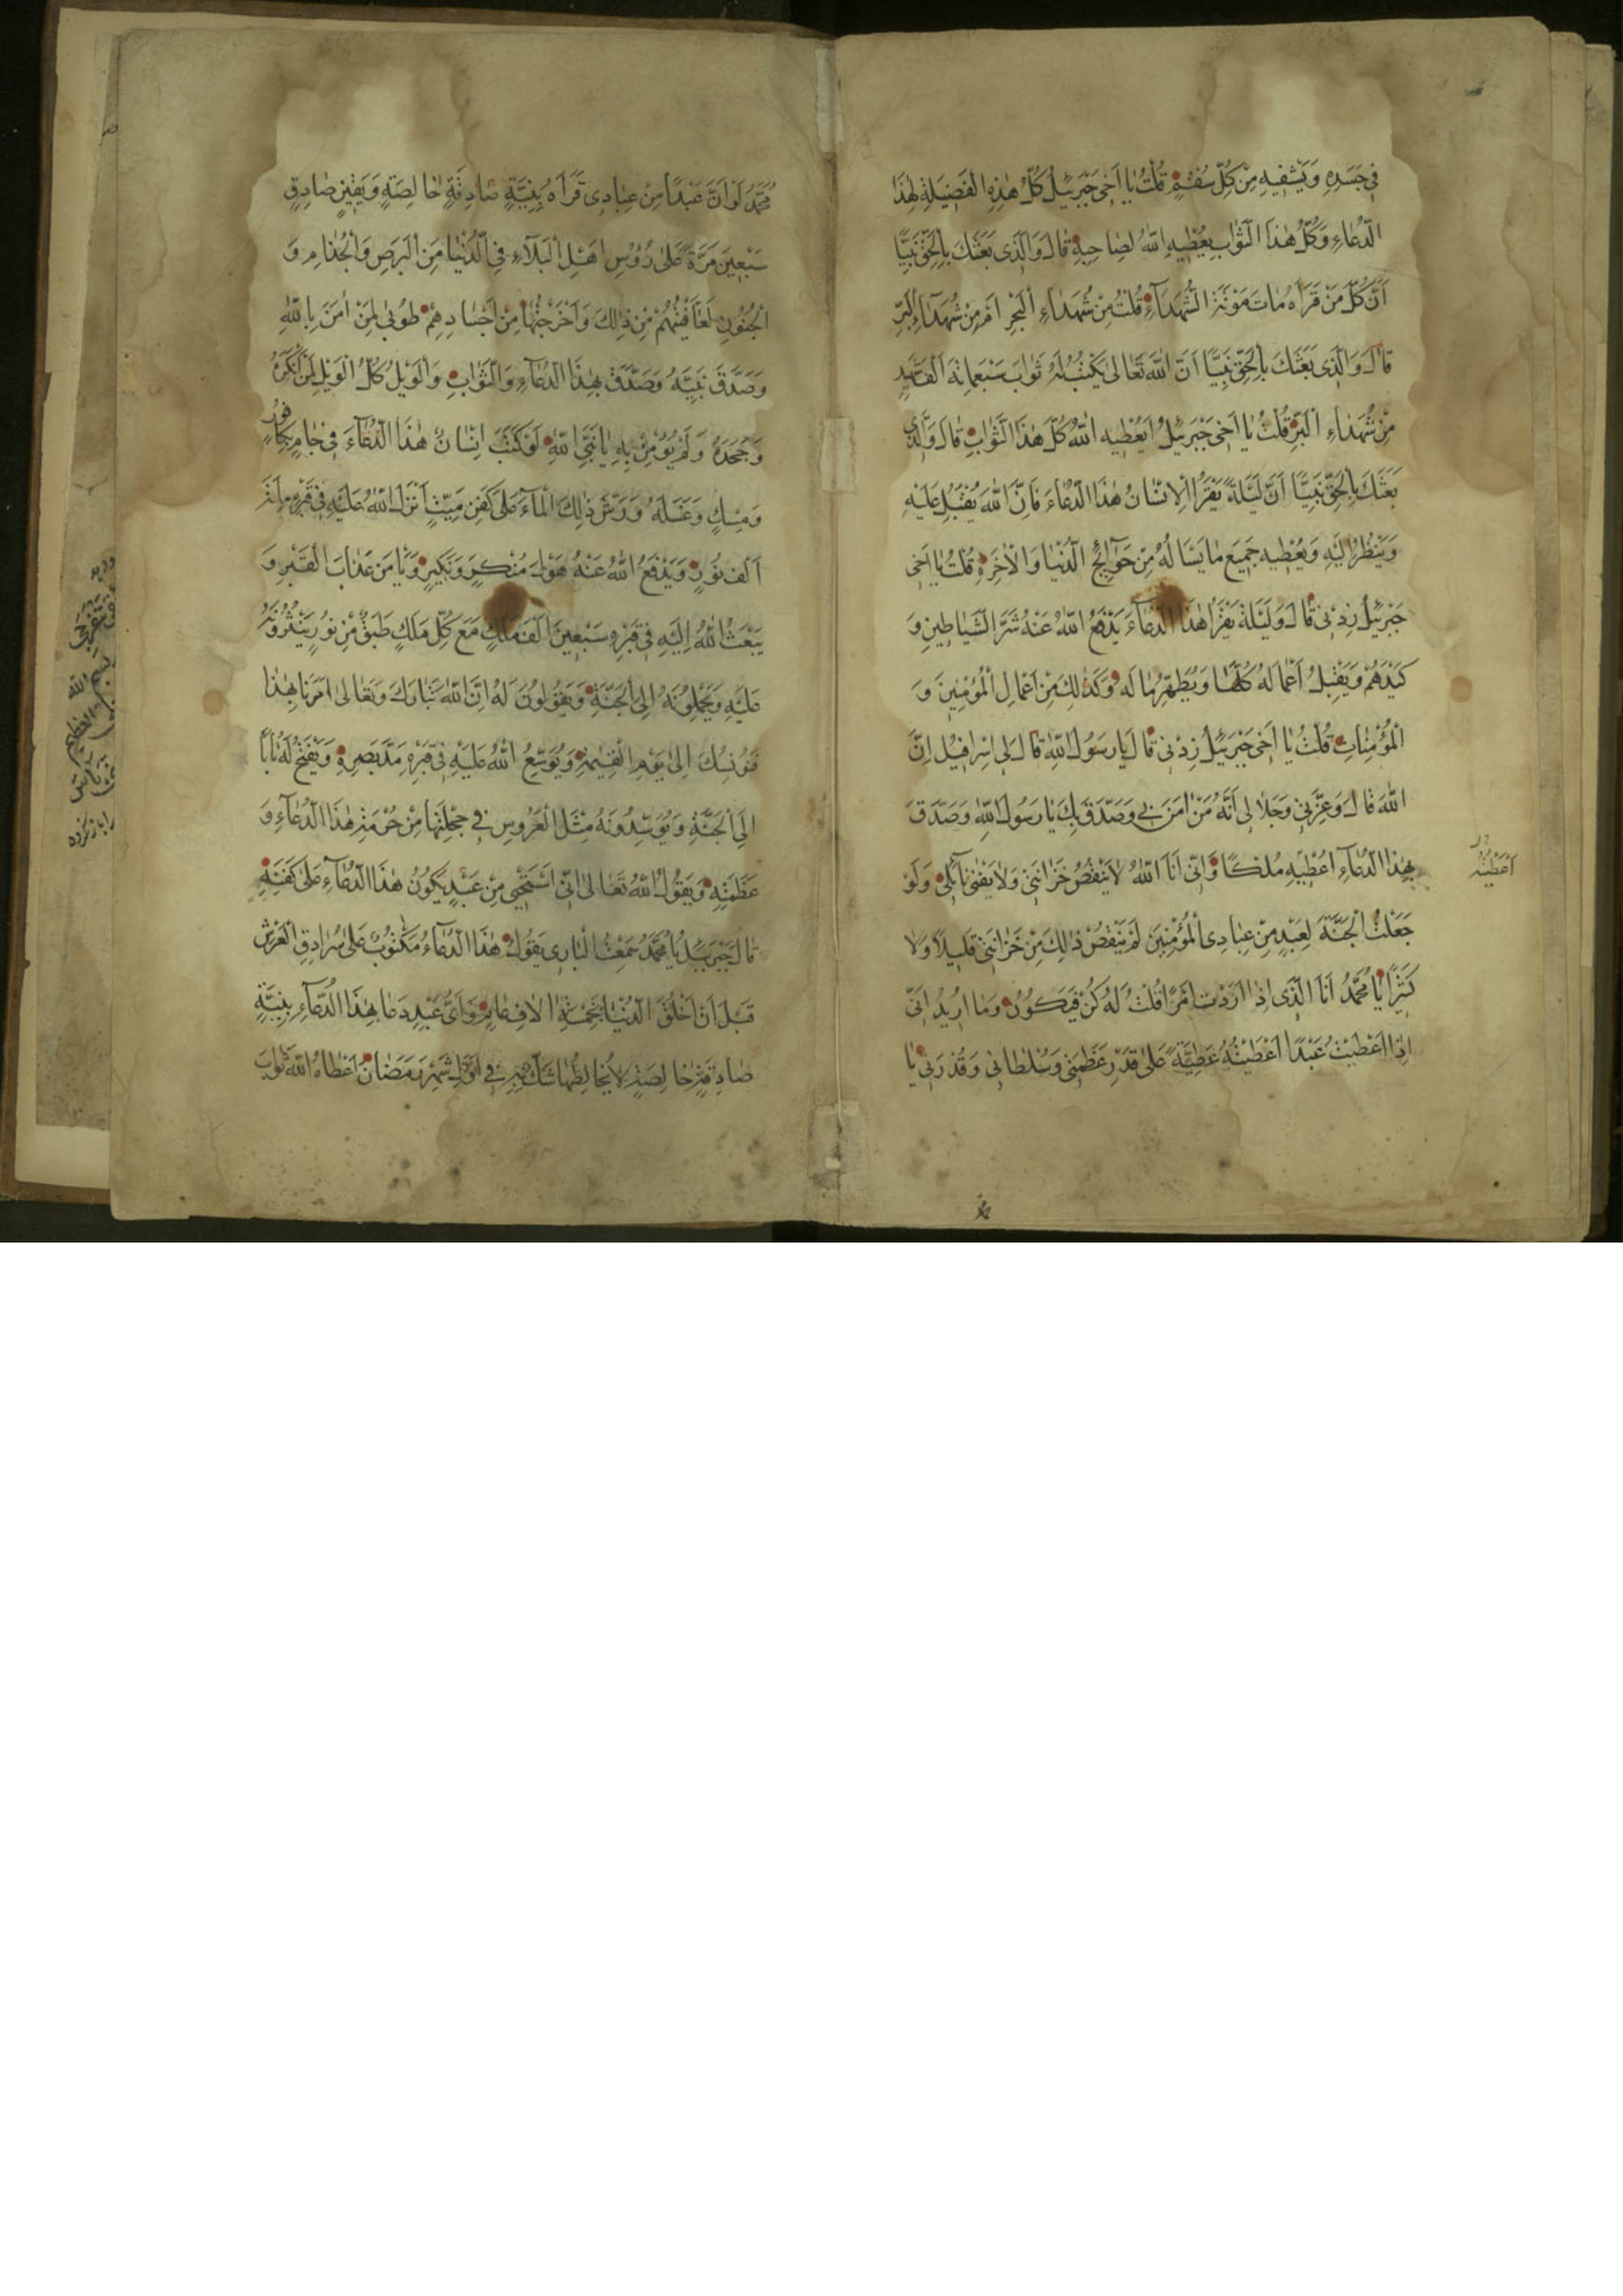 فِي جَسَدِهِ وَيَشْفِيهِ مِنْ كُلِّ سُقْمٍ قُلْتُ يَا اَخِي جَبْرَئِيلُ كُلُّ هٰذِهِ الْفَضِيلَةِ لِهٰذَا
الدُّعَاءِ وَكُلُّ هٰذَا الثَّوَابِ يُعْطِيهِ اللّٰهُ لِصَاحِبِهِ قَالَ وَالَّذِي بَعَثَكَ بِالْحَقِّ نَبِيًّا
اَنَّ كُلَّ مَنْ قَرَاَهُ مَاتَ مَوْتَةَ الشُّهَدَاءِ قُلْتُ مِنْ شُهَدَاءِ الْبَحْرِ اَمْ مِنْ شُهَدَاءِ الْبَرِّ
قَالَ وَالَّذِي بَعَثَكَ بِالْحَقِّ نَبِيًّا اَنَّ اللّٰهَ تَعَالٰى يَكْتُبُ لَهُ ثَوَابَ سَبْعَمِائَة اَلْفِ شَهِيدٍ
مِنْ شُهَدَاءِ الْبَرِّ قُلْتُ يَا اَخِي جَبْرَئِيلُ اَيُعْطِيهِ اللّٰهُ كُلَّ هٰذَا الثَّوَابِ قَالَ وَالَّذِي
بَعَثَكَ بِالْحَقِّ نَبِيًّا اَنَّ لَيْلَةً يَقْرَأُ الْاِنْسَانُ هٰذَا الدُّعَاءَ فَاِنَّ اللّٰهَ يُقْبِلُ عَلَيْهِ
وَيَنْظُرُ اِلَيْهِ وَيُعْطِيهِ جَمِيعَ مَا يَسْاَلُهُ مِنْ حَوَآئِجِ الدُّنْيَا وَالْاٰخِرَةِ قُلْتُ يَا اَخِي
جَبْرَئِيلُ زِدْنِي قَالَ وَلَيْلَةَ يَقْرَأُ هٰذَا الدُّعَآءَ يَدْفَعُ اللّٰهُ عَنْهُ شَرَّ الشَّيَاطِينِ وَ
كَيْدَهُمْ وَيَقْبَلُ اَعْمَالَهُ كُلَّهَا وَيُطَهِّرُ مَالَهُ وَكَذٰلِكَ مِنْ اَعْمَالِ الْمُؤْمِنِينَ وَ
الْمُؤْمِنَاتِ قُلْتُ يَا اَخِي جَبْرَئِيلُ زِدْنِي قَالَ يَا رَسُولَ اللّٰهِ قَالَ لِي اِسْرَافِيلُ اِنَّ
اللّٰهَ قَالَ وَعِزَّتِي وَجَلَالِي اَنَّهُ مَنْ اٰمَنَ بِي وَصَدَّقَ بِكَ يَا رَسُولَ اللّٰهِ وَصَدَّقَ
بِهٰذَا الدُّعَاءِ اُعْطِيهِ مُلْكًا وَاِنِّي اَنَا اللّٰهُ لَا يَنْقُصُ خَزَائِنِي وَلَا يَفْنٰى نَائِلِي وَلَوْ
اَعْطَيْتُهُ
جَعَلْتُ الْجَنَّةَ لِعَبْدٍ مِنْ عِبَادِي الْمُؤْمِنِينَ لَمْ يَنْقُصْ ذٰلِكَ مِنْ خَزَائِنِي قَلِيلًا وَلَا
كَثِيرًا يَا مُحَمَّدُ اَنَا الَّذِي اِذَا اَرَدْتُ اَمْرًا قُلْتُ لَهُ كُنْ فَيَكُونُ وَمَا اُرِيدُ اِنِّي
اِذَا اَعْطَيْتُ عَبْدًا اَعْطَيْتُهُ عَطِيَّةً عَلٰى قَدْرِ عَظَمَتِي وَسُلْطَانِي وَقُدْرَتِي يَا
مُحَمَّدُ لَوْ اَنَّ عَبْدًا مِنْ عِبَادِي قَرَاَهُ بِنِيَّةٍ صَادِقَةٍ خَالِصَةٍ وَيَقِينٍ صَادِقٍ
سَبْعِينَ مَرَّةً عَلٰى رُؤُسِ اَهْلِ الْبَلَآءِ فِي الدُّنْيَا مِنَ الْبَرَصِ وَالْجُذَامِ وَ
الْجُنُونِ لَعَافَيْتُهُمْ مِنْ ذٰلِكَ وَاَخْرَجْتُهَا مِنْ اَجْسَادِهِمْ طُوبٰى لِمَنْ اٰمَنَ بِاللّٰهِ
وَصَدَّقَ نَبِيَّهُ وَصَدَّقَ بِهٰذَا الدُّعَآءِ وَالثَّوَابِ وَالْوَيْلُ كُلُّ الْوَيْلِ لِمَنْ اَنْكَرَهُ
وَجَحَدَهُ وَلَمْ يُؤْمِنْ بِهِ يَا نَبِيَّ اللّٰهِ لَوْ كَتَبَ اِنْسَانٌ هٰذَا الدُّعَآءَ فِي جَامٍ بِكَافُورٍ
وَمِسْكٍ وَغَسَلَهُ وَرَشَّ ذٰلِكَ الْمَآءَ عَلٰى كَفَنِ مَيِّتٍ اَنْزَلَ اللّٰهُ عَلَيْهِ فِي قَبْرِهِ مِائَةَ
اَلْفِ نُورٍ وَيَدْفَعُ اللّٰهُ عَنْهُ هَوْلَ مُنْكَرٍ وَنَكِيرٍ وَيَأْمَنُ عَذَابَ الْقَبْرِ وَ
يَبْعَثُ اللّٰهُ اِلَيْهِ فِي قَبْرِهِ سَبْعِينَ اَلْفَ مَلَكٍ مَعَ كُلِّ مَلَكٍ طَبَقٌ مِنْ نُورٍ يَنْثُرُونَهُ
عَلَيْهِ وَيَحْمِلُونَهُ اِلَى الْجَنَّةِ وَيَقُولُونَ لَهُ اِنَّ اللّٰهَ تَبَارَكَ وَتَعَالٰى اَمَرَنَا بِهٰذَا
وَنُونِسُكَ اِلٰى يَوْمِ الْقِيٰمَةِ وَيُوَسِّعُ اللّٰهُ عَلَيْهِ فِي قَبْرِهِ مَدَّ بَصَرِهِ وَيَفْتَحُ لَهُ بَابًا
اِلَى الْجَنَّةِ وَيُوَسِّدُونَهُ مِثْلَ الْعَرُوسِ فِي حَجْلَتِهَا مِنْ حُرْمَةِ هٰذَا الدُّعَآءِ وَ
عَظَمَتِهِ وَيَقُولُ اللّٰهُ تَعَالٰى اِنِّي اَسْتَحْيِي مِنْ عَبْدٍ يَكُونُ هٰذَا الدُّعَآءُ عَلٰى كَفَنِهِ
قَالَ جَبْرَئِيلُ يَا مُحَمَّدُ سَمِعْتُ الْبَارِي يَقُولُ هٰذَا الدُّعَآءُ مَكْتُوبٌ عَلٰى سُرَادِقِ الْعَرْشِ
قَبْلَ اَنْ اَخْلُقَ الدُّنْيَا بِخَمْسَةِ اٰلَافِ عَامٍ وَاَيُّ عَبْدٍ دَعَا بِهٰذَا الدُّعَآءِ بِنِيَّةٍ
صَادِقَةٍ خَالِصَةٍ لَا يُخَالِطُهَا شَكٌّ فِي اَوَّلِ شَهْرِ رَمَضَانَ اَعْطَاهُ اللّٰهُ ثَوَابَ
بسم الله
العظيم